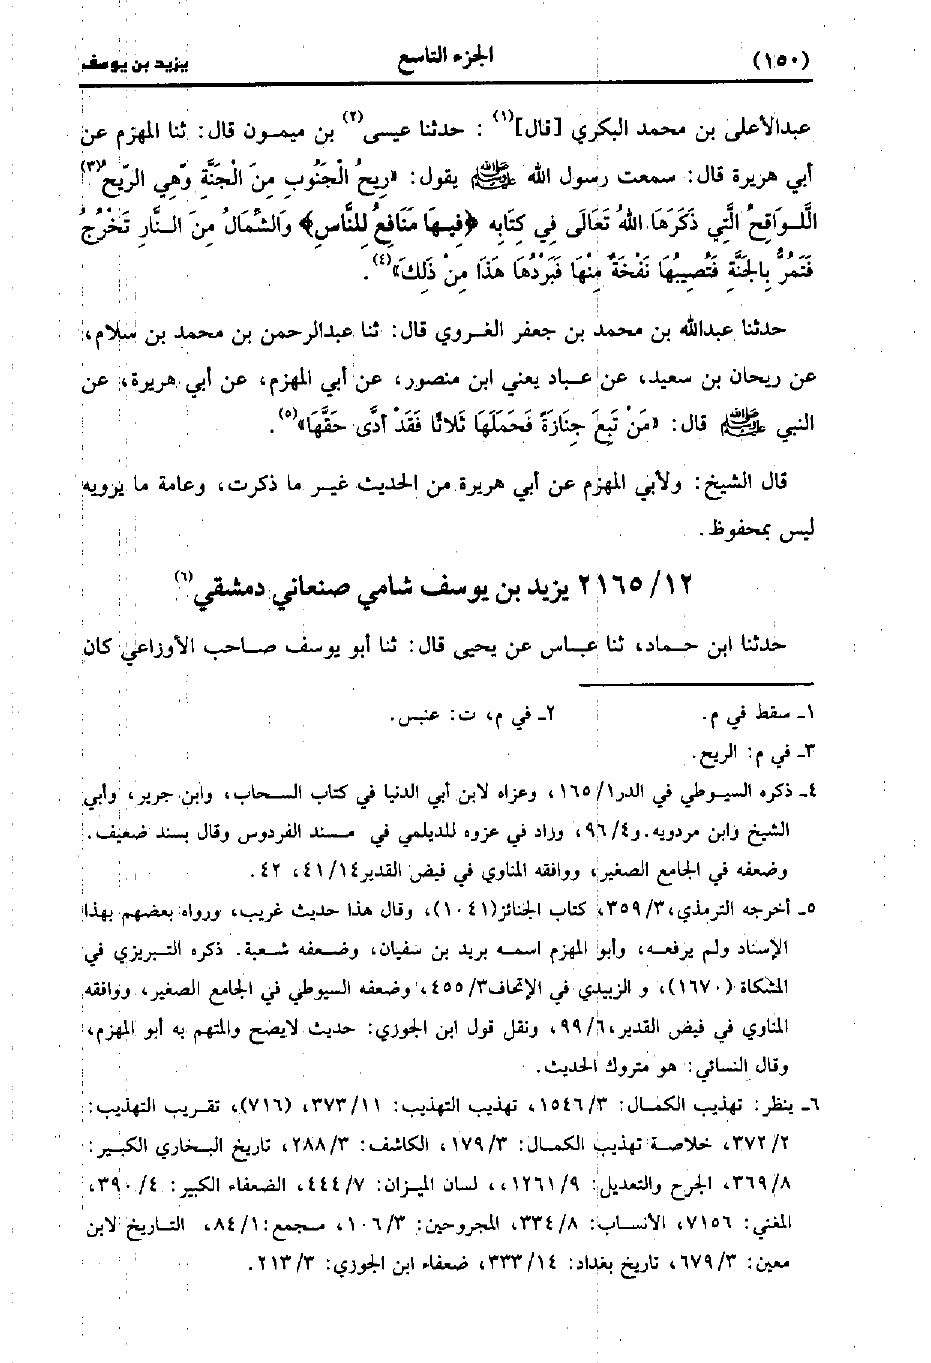 (١٥٠) الجزء التاسع يزيد بن يوسف
عبدالأعلى بن محمد البكري [قال](١) : حدثنا عيسى(٢) بن ميمون قال: ثنا المهزم عن
أبي هريرة قال: سمعت رسول الله ﷺ يقول: «رِيحُ الْجَنُوبِ مِنَ الْجَنَّةِ وَهِي الرِّيحُ(٣)
اللَّوَاقِحُ الَّتِي ذَكَرَهَا اللهُ تَعَالَى فِي كِتَابِهِ ﴿فِيهَا مَنَافِعُ لِلنَّاسِ﴾ وَالشَّمَالُ مِنَ النَّارِ تَخْرُجُ
فَتَمُرُّ بِالْجَنَّةِ فَتُصِيبُهَا نَفْحَةٌ مِنْهَا فَبَرْدُهَا هَذَا مِنْ ذَلِكَ»(٤).
حدثنا عبدالله بن محمد بن جعفر الغروي قال: ثنا عبدالرحمن بن محمد بن سلام،
عن ريحان بن سعيد، عن عباد يعني ابن منصور، عن أبي المهزم، عن أبي هريرة، عن
النبي ﷺ قال: «مَنْ تَبِعَ جِنَازَةً فَحَمَلَهَا ثَلاثًا فَقَدْ أَدَّى حَقَّهَا»(٥).
قال الشيخ: ولأبي المهزم عن أبي هريرة من الحديث غير ما ذكرت، وعامة ما يرويه
ليس بمحفوظ.
٢١٦٥/١٢ يزيد بن يوسف شامي صنعاني دمشقي(٦)
حدثنا ابن حماد، ثنا عباس عن يحيى قال: ثنا أبو يوسف صاحب الأوزاعي كان
١ـ سقط في م. ٢ـ في م، ت: عنبس.
٣ـ في م: الريح.
٤ـ ذكره السيوطي في الدر١٦٥/١، وعزاه لابن أبي الدنيا في كتاب السحاب، وابن جرير، وأبي
الشيخ وابن مردويه. و٩٦/٤، وزاد في عزوه للديلمي في مسند الفردوس وقال بسند ضعيف.
وضعفه في الجامع الصغير، ووافقه المناوي في فيض القدير٤١/١٤، ٤٢.
٥ـ أخرجه الترمذي،٣٥٩/٣، كتاب الجنائز(١٠٤١)، وقال هذا حديث غريب، ورواه بعضهم بهذا
الإسناد ولم يرفعه، وأبو المهزم اسمه بريد بن سفيان، وضعفه شعبة. ذكره التبريزي في
المشكاة (١٦٧٠)، و الزبيدي في الإتحاف٤٥٥/٣، وضعفه السيوطي في الجامع الصغير، ووافقه
المناوي في فيض القدير،٩٩/٦، ونقل قول ابن الجوزي: حديث لايصح والمتهم به أبو المهزم،
وقال النسائي: هو متروك الحديث.
٦ـ ينظر: تهذيب الكمال: ١٥٤٦/٣، تهذيب التهذيب: ٣٧٣/١١، (٧١٦)، تقريب التهذيب:
٣٧٢/٢، خلاصة تهذيب الكمال: ١٧٩/٣، الكاشف: ٢٨٨/٣، تاريخ البخاري الكبير:
٣٦٩/٨، الجرح والتعديل: ١٢٦١/٩،، لسان الميزان: ٤٤٤/٧، الضعفاء الكبير: ٣٩٠/٤،
المغني: ٧١٥٦، الأنساب: ٣٣٤/٨، المجروحين: ١٠٦/٣، مجمع: ٨٤/١، التاريخ لابن
معين: ٦٧٩/٣، تاريخ بغداد: ٣٣٣/١٤، ضعفاء ابن الجوزي: ٢١٣/٣.